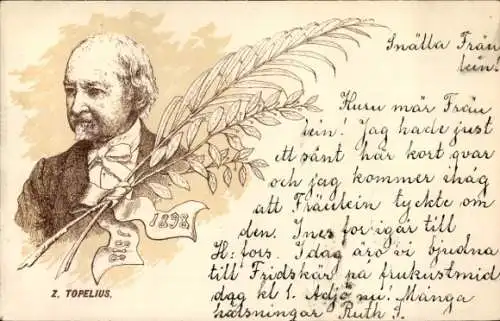 Snälla Fräu
lein!
Huru mår Fräu
lein! Jag hade just
ett sånt här kort qvar
och jag kommer ihåg
att Fräulein tyckte om
den. Ines for igår till
H:fors. I dag äro vi bjudna
till Fridskär på frukustmid
dag kl 1. Adjö nu! Många
hälsningar Ruth J.
1898
Z. TOPELIUS.